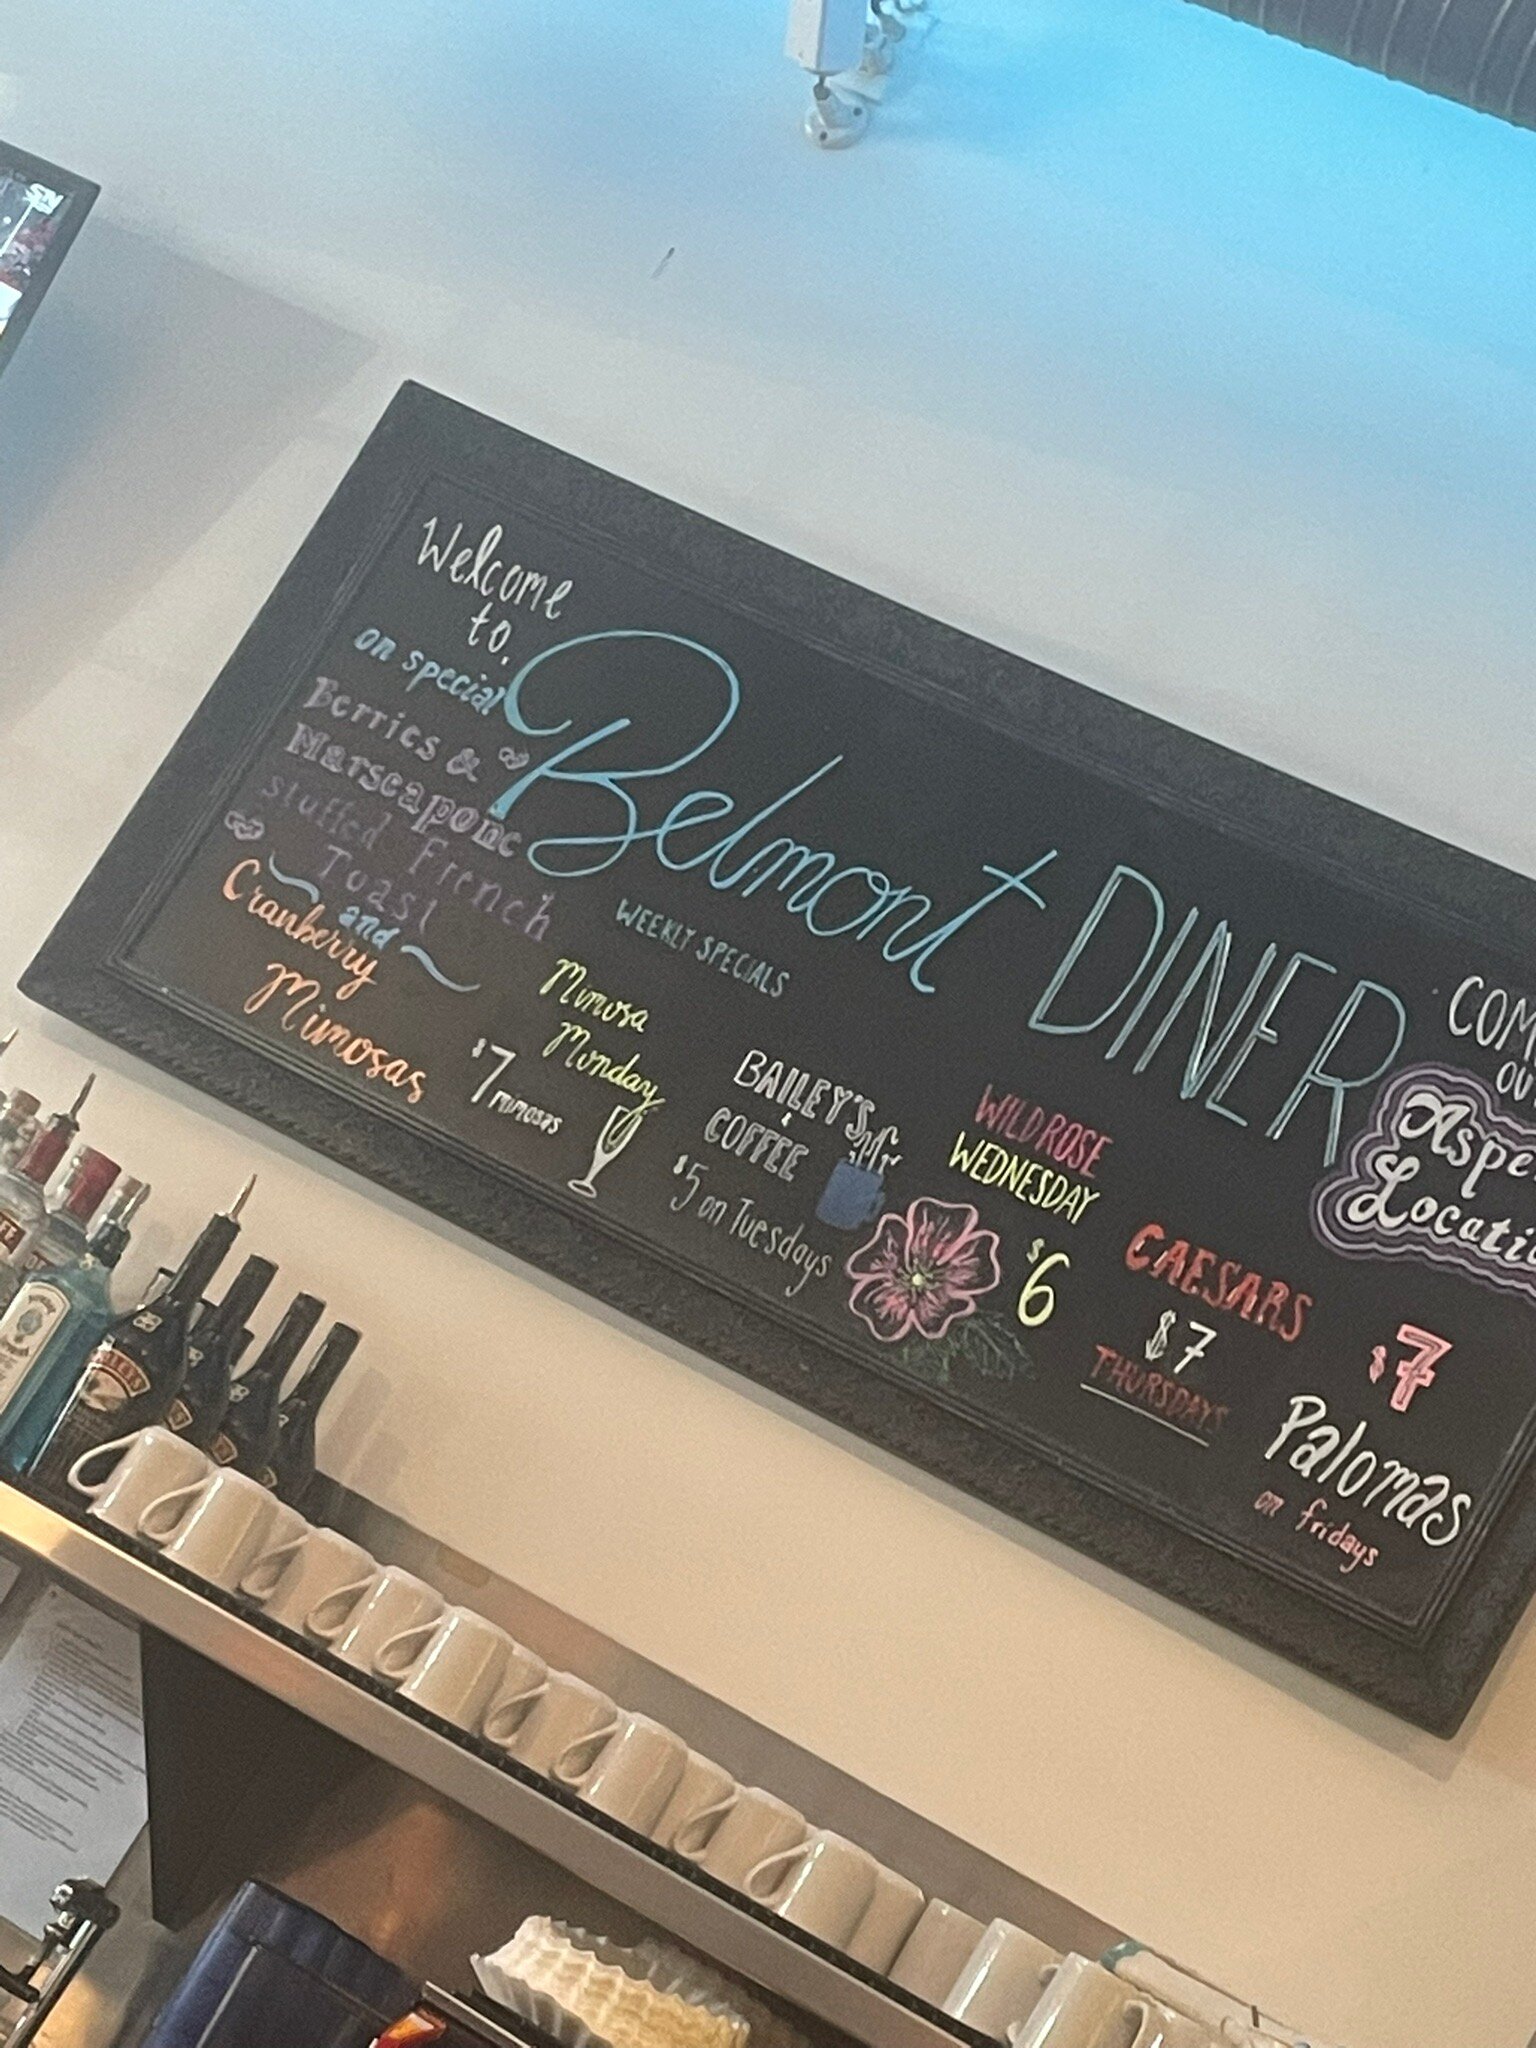 Welcome
to.
on special
Berries &
Marscapone
stuffed French
Toast
and
Cranberry
Mimosas
Belmont DINER
WEEKLY SPECIALS
Mimosa
Monday
$7 mimosas
BAILEY'S
&
COFFEE
$5 on Tuesdays
WILDROSE
WEDNESDAY
$6
CAESARS
$7
THURSDAYS
$7
Palomas
on fridays
COM
OU
Aspe
Locati
SN
BAILEYS